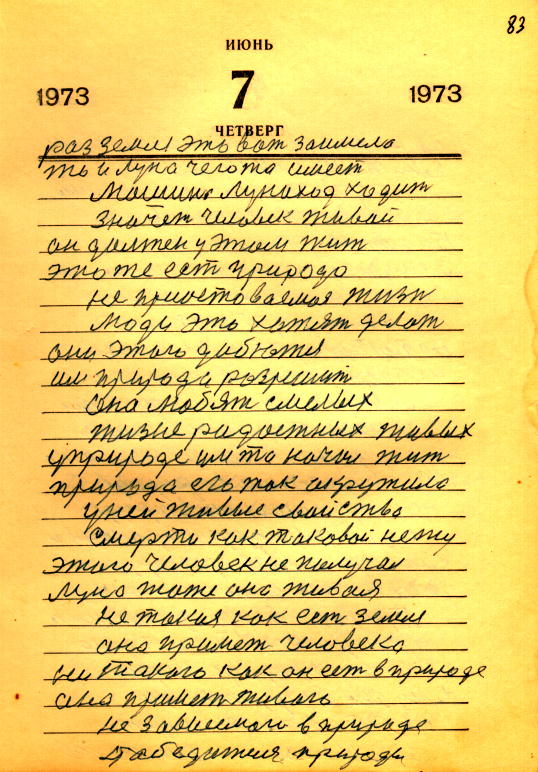 83
ИЮНЬ
1973 7 1973
ЧЕТВЕРГ
раз земля это вот заимела
то и Луна чегота имеет
Машина Луноход ходит
значет человек живой
он должен у этом жит
это же ест природа
не приостоваемая жизн
люди это хотят делат
они этого добютя
им природа разрешит
она любят смелых
жизне радостных живых
у природе им то начал жит
природа его так окружила
у ней живые свойства
смерти как таковой нету
этого человек не получал
Луна тоже она живая
не такая как ест земля
она примет человека
ни такого как он ест в природе
она примет живого
не зависемого в природе
победителя природы